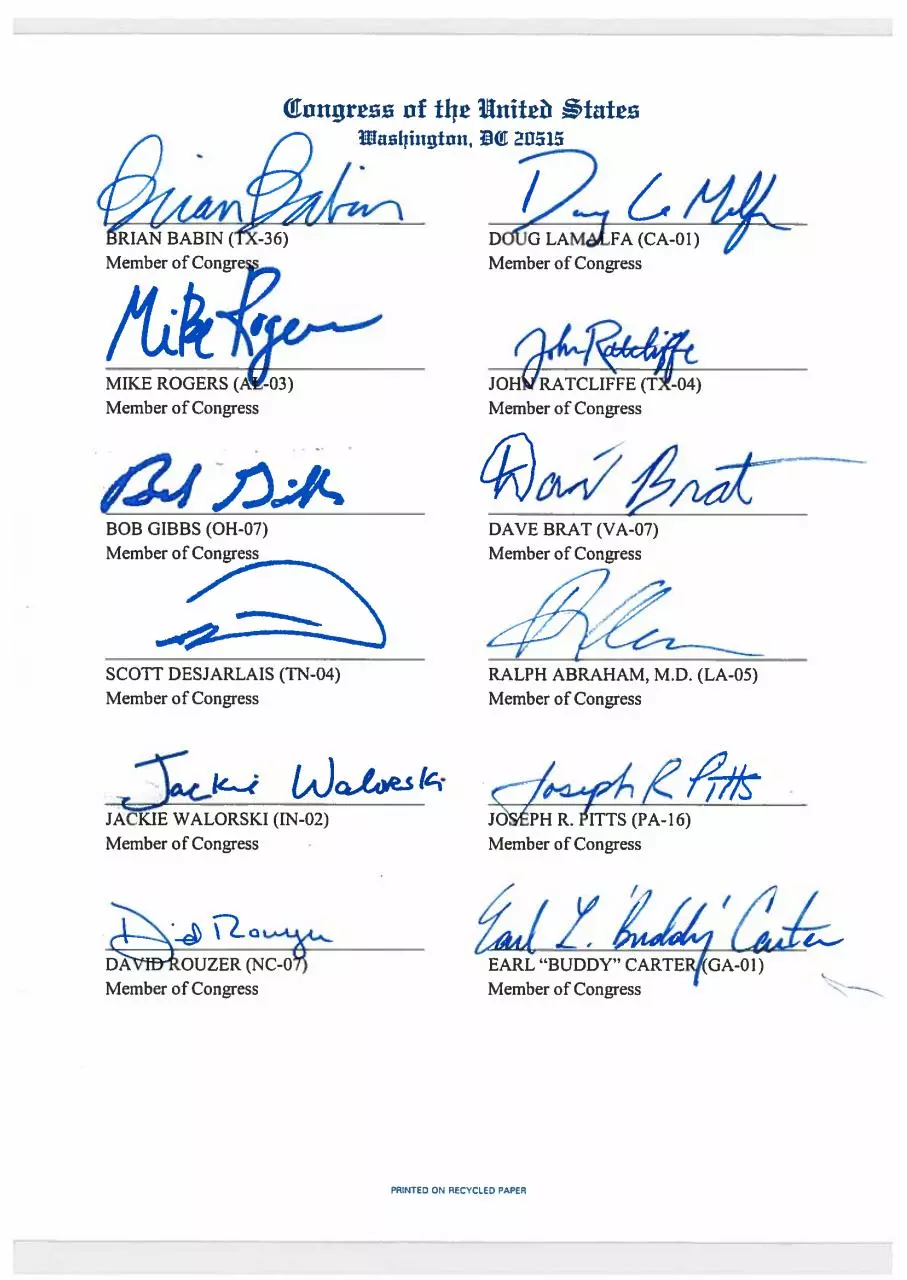 Congress of the United States
Washington, DC 20515
Brian Babin
Doug LaMalfa
BRIAN BABIN (TX-36)
DOUG LAMALFA (CA-01)
Member of Congress
Member of Congress
Mike Rogers
John Ratcliffe
MIKE ROGERS (AL-03)
JOHN RATCLIFFE (TX-04)
Member of Congress
Member of Congress
Bob Gibbs
Dave Brat
BOB GIBBS (OH-07)
DAVE BRAT (VA-07)
Member of Congress
Member of Congress
SCOTT DESJARLAIS (TN-04)
RALPH ABRAHAM, M.D. (LA-05)
Member of Congress
Member of Congress
Jackie Walorski
Joseph R Pitts
JACKIE WALORSKI (IN-02)
JOSEPH R. PITTS (PA-16)
Member of Congress
Member of Congress
David Rouzer
Earl L. "Buddy" Carter
DAVID ROUZER (NC-07)
EARL “BUDDY” CARTER (GA-01)
Member of Congress
Member of Congress
PRINTED ON RECYCLED PAPER